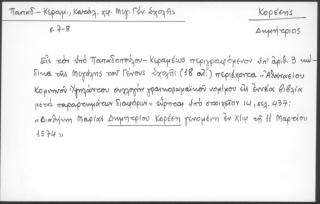 Παπαδ-Κεραμ, Κατάλ. χφ. Μεγ. Γέν. Σχολῆς Κορέσης
σ. 7-8 Δημήτριος
Εἰς τὸν ὑπὸ Παπαδοπούλου-Κεραμέως περιγραφόμενον ὑπ' ἀριθ. 3 κώ-
δικα τῆς Μεγάλης τοῦ Γένους Σχολῆς (18 αἰ.) περιέχεται «Ἀθανασίου
Κομνηνοῦ Ὑψηλάντου συλλογὴ γραικορωμαϊκοῦ νομίμου εἰς ἐννέα βιβλία
μετὰ παραρτημάτων διαφόρων» εὕρηται ὑπὸ στοιχεῖον 14, σελ. 437:
«Διαθήκη Μαρίας Δημητρίου Κορέση γενομένη ἐν Χίῳ τῇ 11 Μαρτίου
1574»